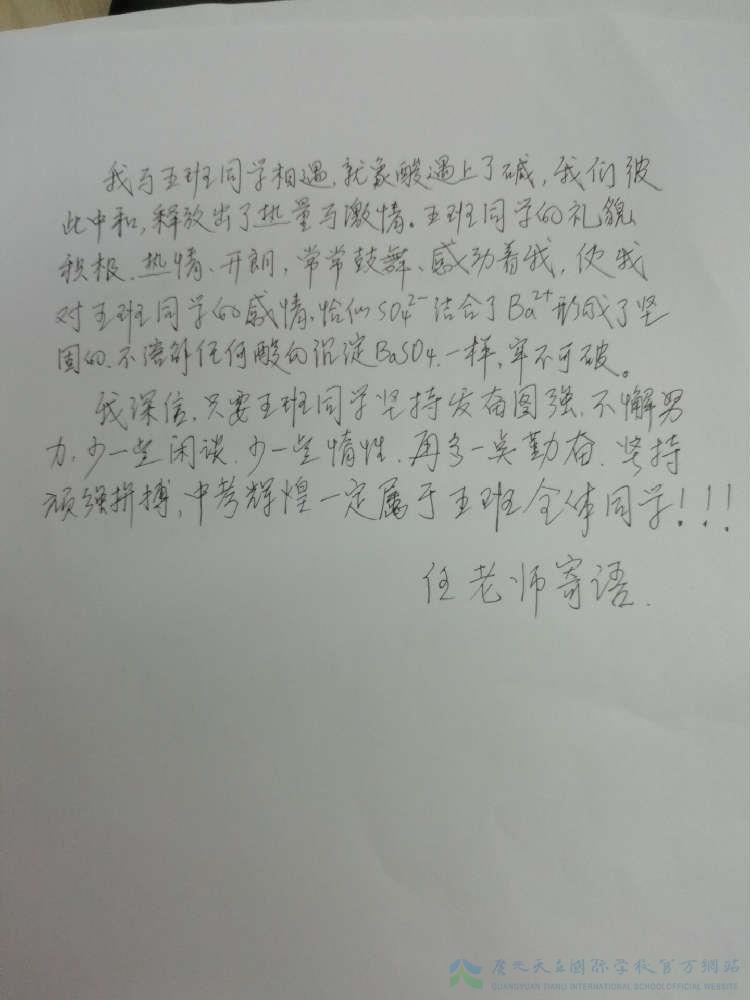 我与五班同学相遇,就象酸遇上了碱,我们彼
此中和,释放出了热量与激情。五班同学的礼貌、
积极、热情、开朗,常常鼓舞、感动着我,使我
对五班同学的感情,恰似SO₄²⁻结合了Ba²⁺形成了坚
固的、不溶解任何酸的沉淀BaSO₄一样,牢不可破。
我深信,只要五班同学坚持发奋图强,不懈努
力,少一些闲谈、少一些惰性、再多一点勤奋、坚持
顽强拼搏,中考辉煌一定属于五班全体同学!!!
任老师寄语.
广元天立国际学校官方網站
GUANGYUAN TIANLI INTERNATIONAL SCHOOL OFFICIAL WEBSITE